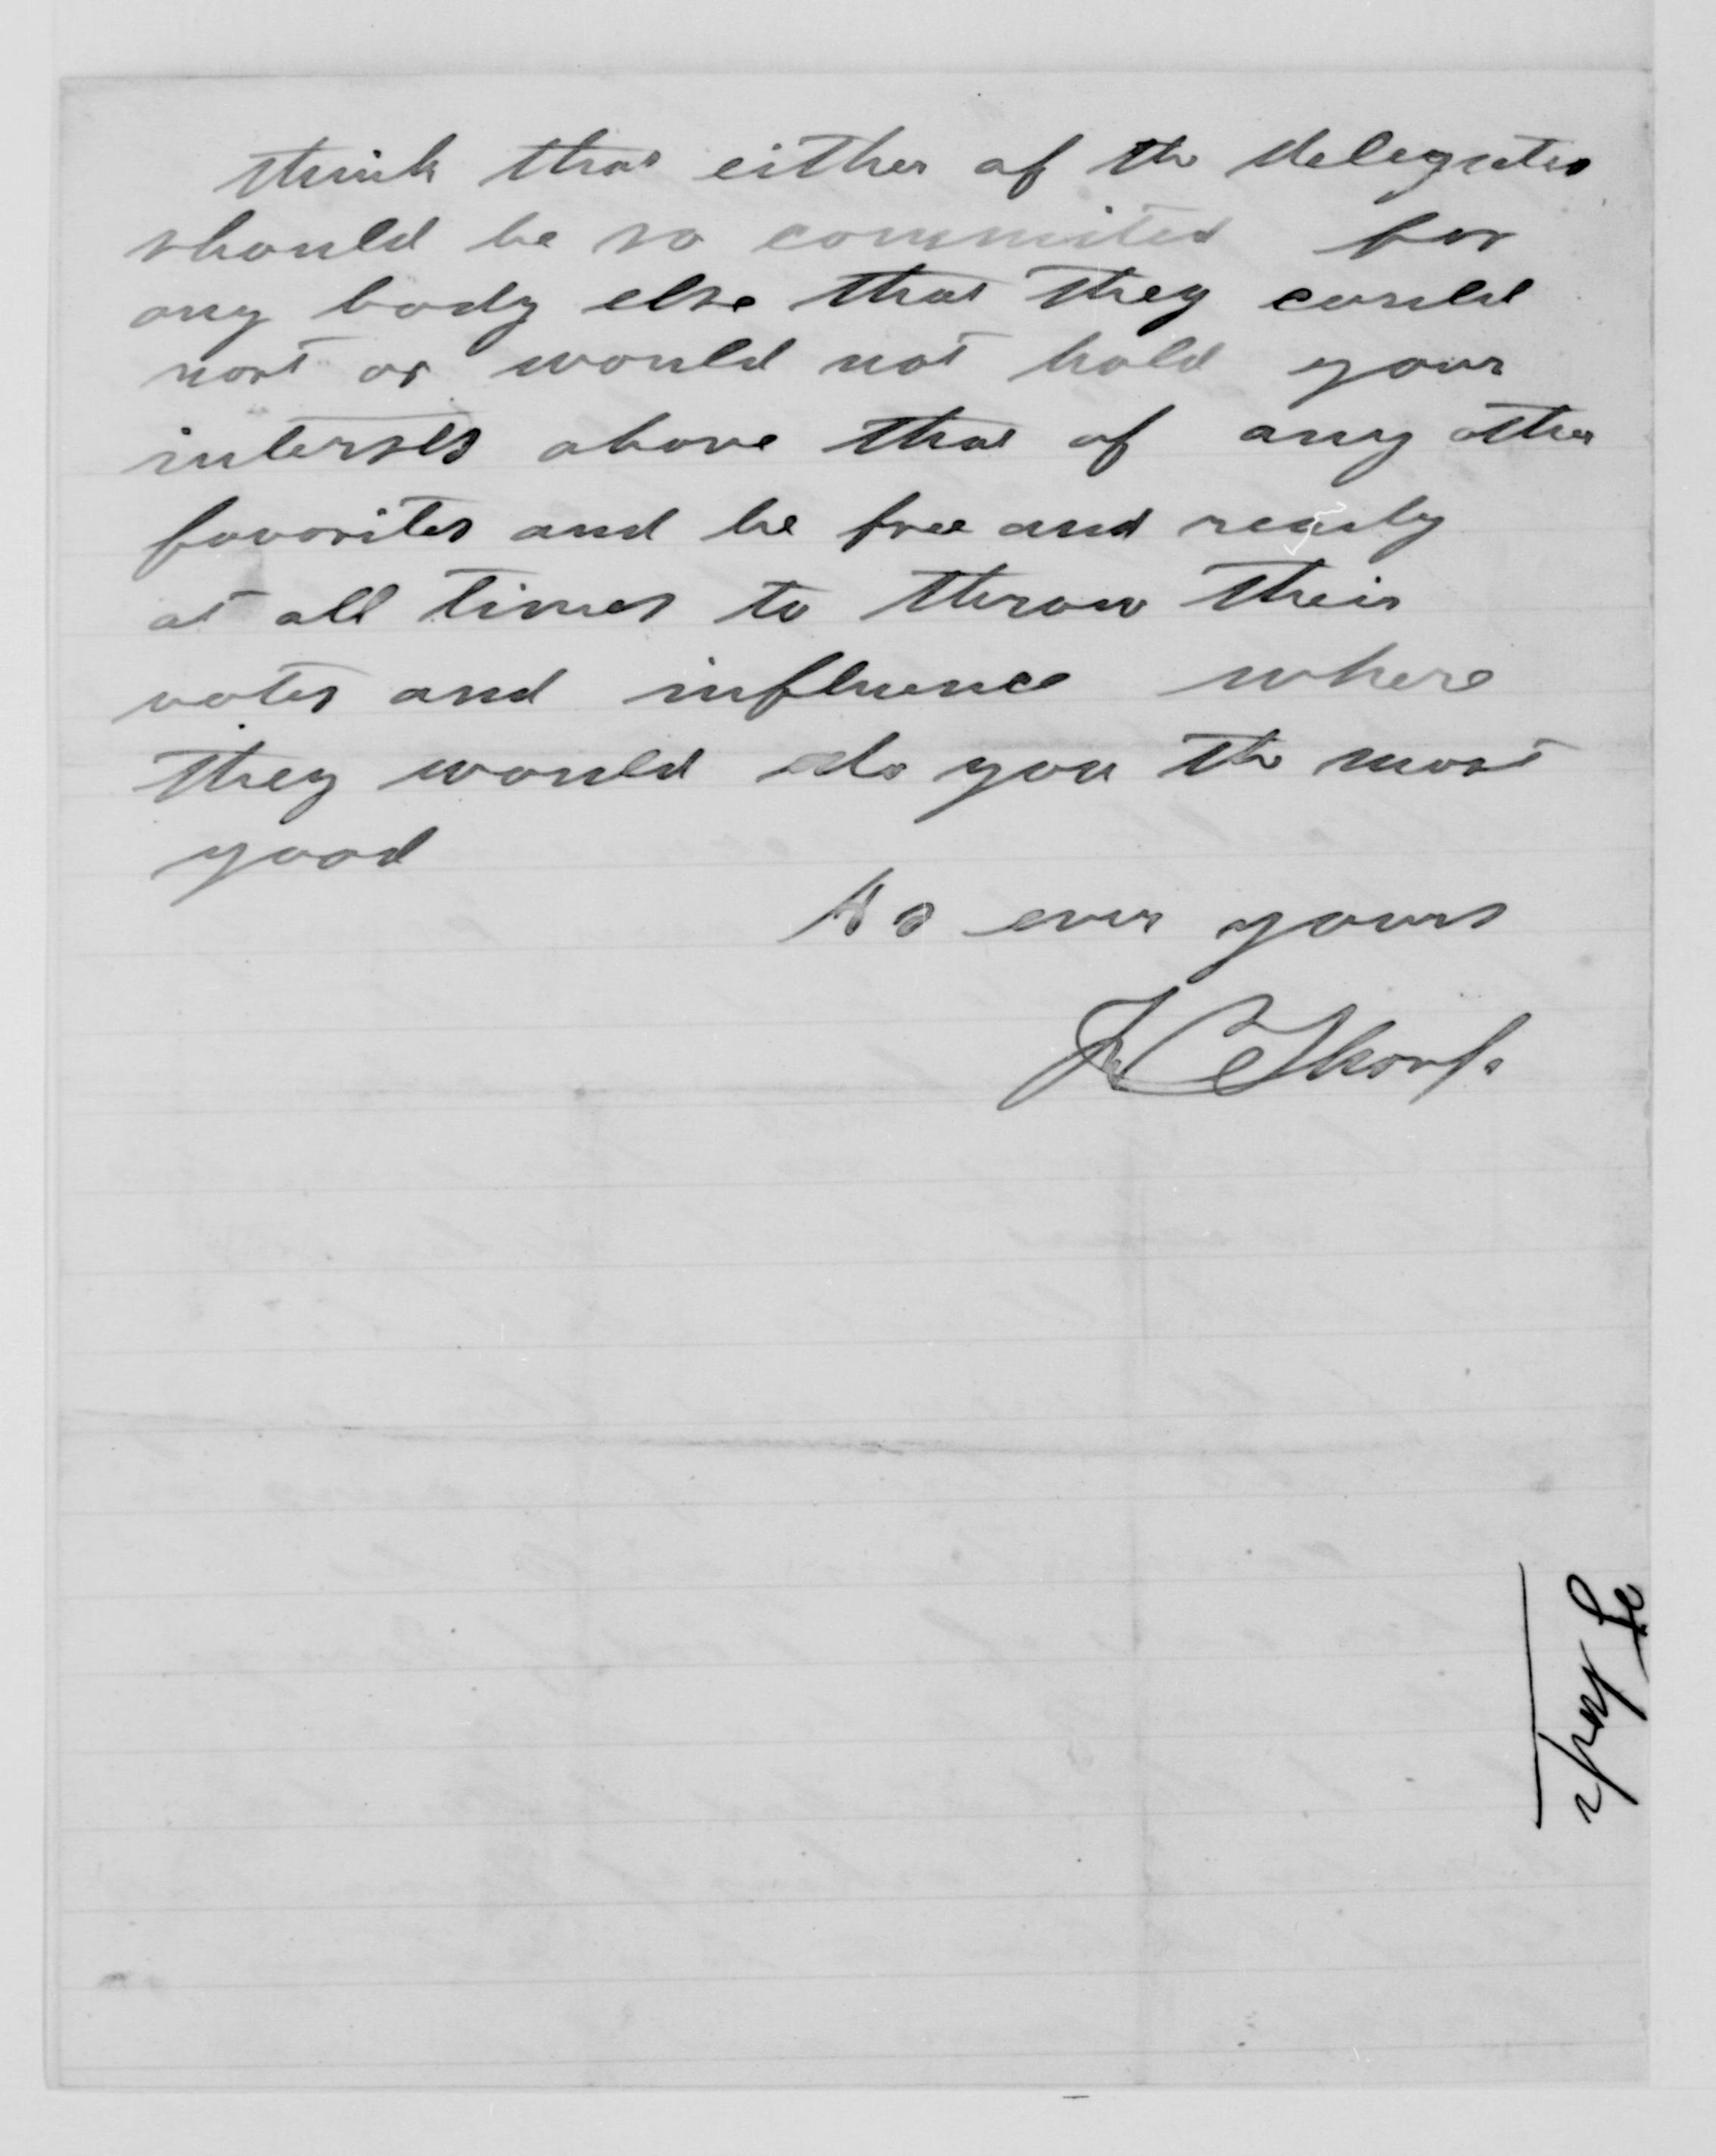 think that either of the delegates
should be so commited for
any body else that they could
not or would not hold your
intersts above that of any other
favorites and be free and ready
at all times to throw their
votes and influence where
they would do you the most
good
As ever yours
J C Thorp